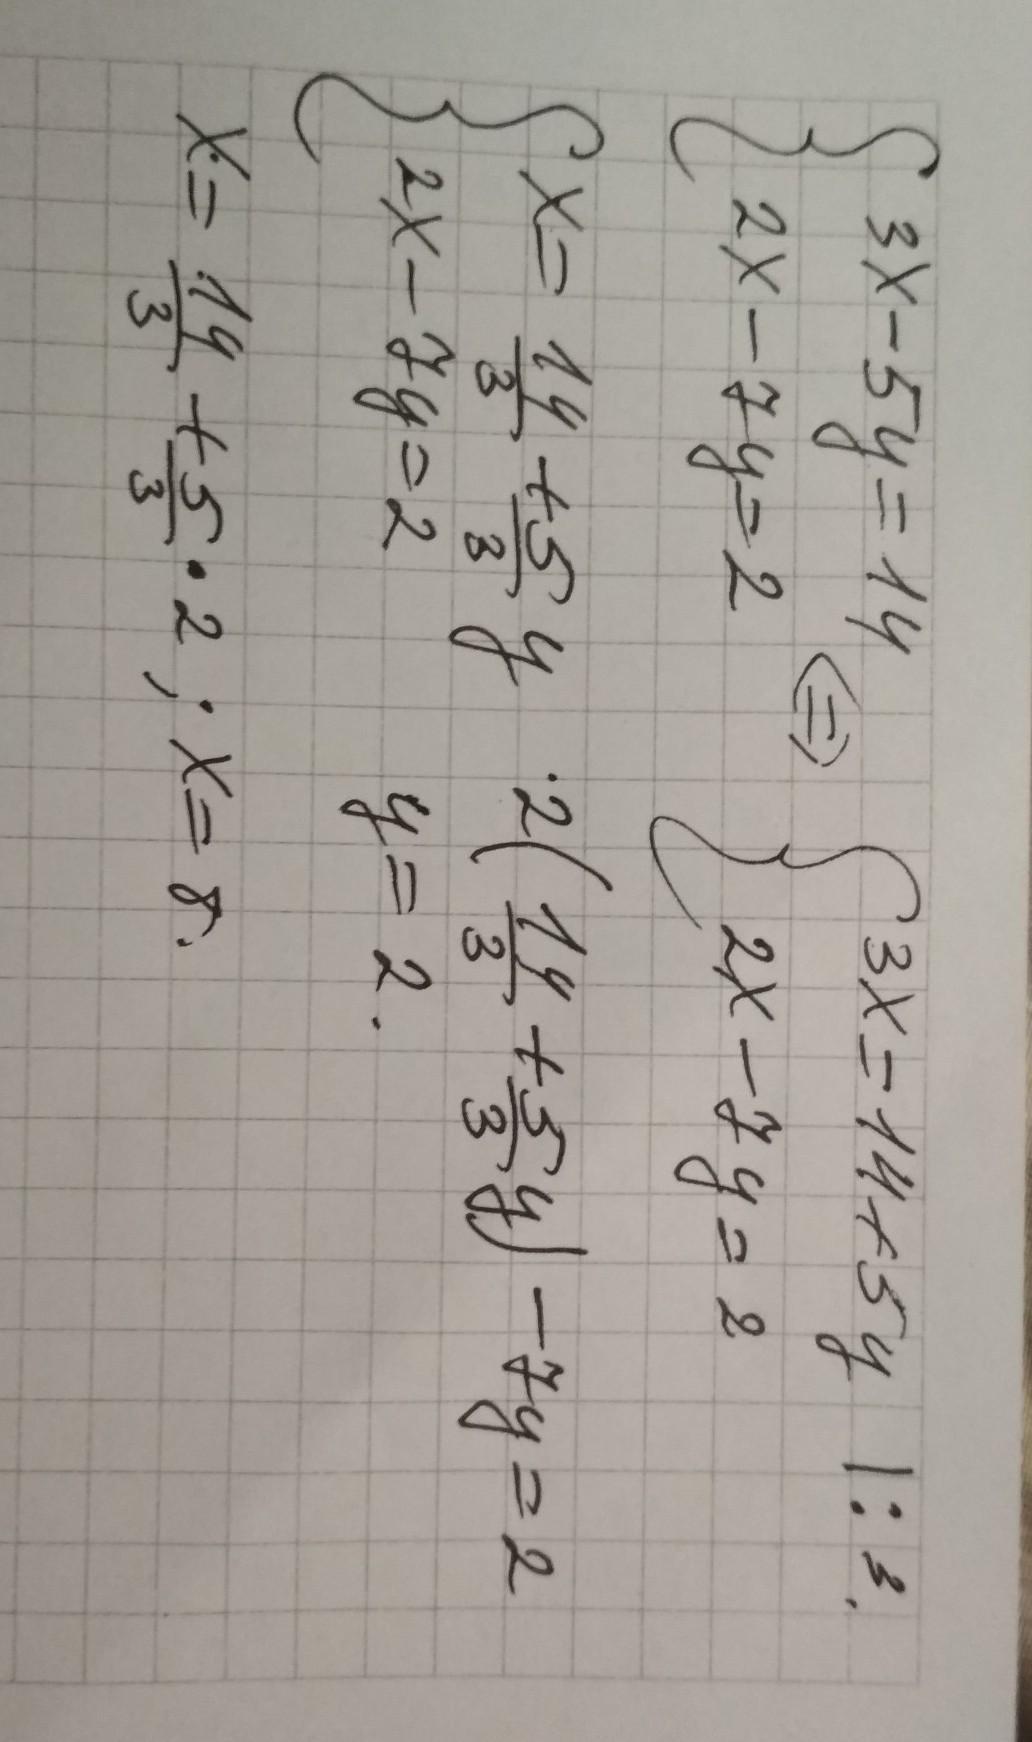 { 3x - 5y = 14
{ 2x - 7y = 2
⇔
{ 3x = 14 + 5y | : 3.
{ 2x - 7y = 2
{ x = 14/3 + 5/3 y
{ 2x - 7y = 2
· 2(14/3 + 5/3 y) - 7y = 2
y = 2.
x = 14/3 + 5/3 · 2, · x = 8.